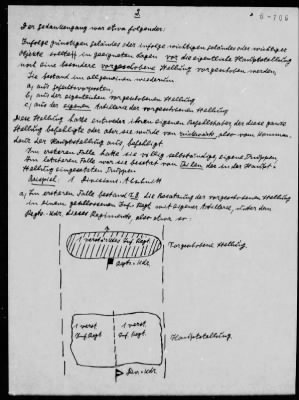 3
B-706
Der Gedankengang war etwa folgender:
Infolge günstigen Geländes oder infolge wichtigen Geländes oder wichtiger
Objekte sollte in geeigneten Lagen vor die eigentliche Hauptstellung
noch eine besondere vorgeschobene Stellung vorgeschoben werden.
Sie bestand im allgemeinen wiederum
a) aus Gefechtsvorposten
b) aus der eigentlichen vorgeschobenen Stellung
c) aus der eigenen Artillerie der vorgeschobenen Stellung
Diese Stellung hatte entweder ihren eigenen Befehlshaber, der diese ganze
Stellung befehligte oder aber sie wurde von rückwärts, also vom Komman-
deur der Hauptstellung aus, befehligt.
Im ersteren Falle hatte sie völlig selbständige, eigene Truppen
Im letzteren Falle war sie besetzt von Teilen der in der Haupt-
Stellung eingesetzten Truppen
Beispiel: 1 Divisions-Abschnitt
a) Im ersteren Falle bestand z.B. die Besatzung der vorgeschobenen Stellung
in einem geschlossenen Inf. Regt. mit eigener Artillerie, unter dem
Regts. Kdr. dieses Regiments, also etwa so:
1 verstärktes Inf. Regt.
Vorgeschobene Stellung
Regts.-Kdr.
1 verst. 1 verst.
Inf. Regt. Inf. Regt.
Hauptstellung
Div.-Kdr.